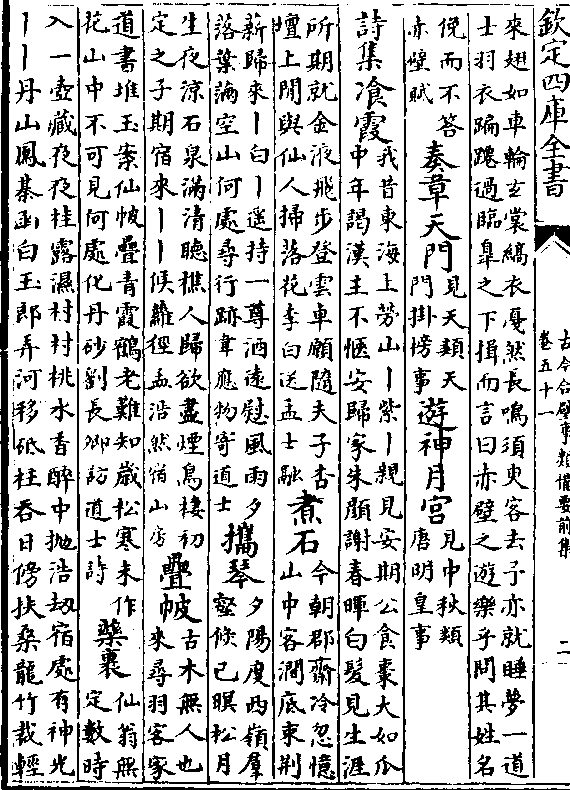 欽定四庫全書
古今合璧事類備要前集
卷五十一
二
來翅如車輪玄裳縞衣戛然長鳴須臾客去予亦就睡夢一道
士羽衣蹁躚過臨臯之下揖而言曰赤壁之遊樂乎問其姓名
俛而不答
赤壁賦
奏章天門
見天類天
門掛榜事
遊神月宮
見中秋類
唐明皇事
詩集
飡霞
我昔東海上勞山丨紫丨親見安期公食棗大如瓜
中年謁漢主不愜安歸家朱顔謝春暉白髮見生涯
所期就金液飛步登雲車願隨夫子
壇上閒與仙人掃落花李白送孟士融
煮石
今朝郡齋冷忽憶
山中客澗底束荆
薪歸來丨白丨遥持一尊酒遠慰風雨夕
落葉滿空山何處尋行跡韋應物寄道士
攜琴
夕陽度西嶺羣
壑倐已暝松月
生夜涼石泉滿清聽樵人歸欲盡煙鳥棲初
定之子期宿來丨丨俟蘿徑孟浩然宿山房
疊帔
古木無人也
來尋羽客家
道書堆玉案仙帔疊青霞鶴老難知歲松寒未作
花山中不可見何處化丹砂劉長卿訪道士詩
藥裹
仙翁無
定數時
入一壺藏夜夜桂露濕村村桃水香醉中抛浩刼宿處有神光
丨丨丹山鳳棊函白玉郎弄河移砥柱吞日傍扶桑龍竹裁輕